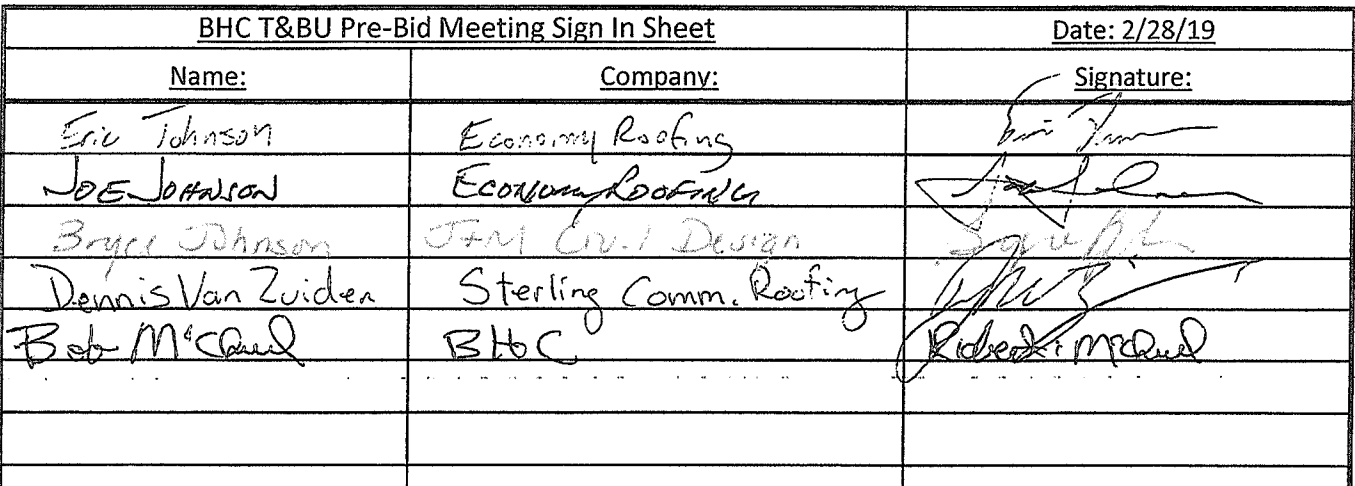 BHC T&BU Pre-Bid Meeting Sign In Sheet Date: 2/28/19
Name: Company: Signature:
Eric Johnson Economy Roofing
JOE JOHNSON ECONOMY ROOFING
Bryce Johnson J+M Civil Design
Dennis Van Zuiden Sterling Comm. Roofing
Bob BHC